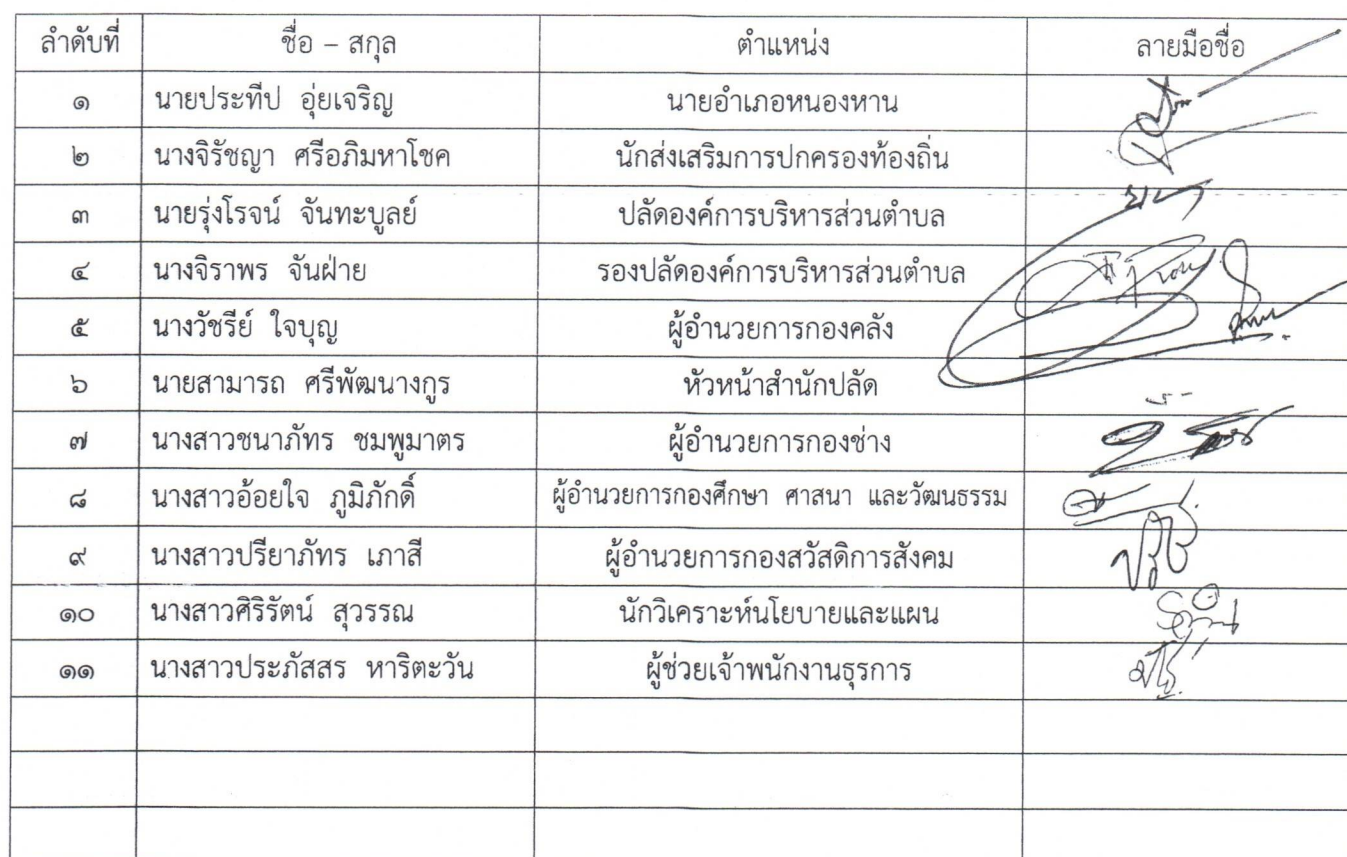 ลำดับที่ ชื่อ – สกุล ตำแหน่ง ลายมือชื่อ
๑ นายประทีป อุ่ยเจริญ นายอำเภอหนองหาน
๒ นางจิรัชญา ศรีอภิมหาโชค นักส่งเสริมการปกครองท้องถิ่น
๓ นายรุ่งโรจน์ จันทะบูลย์ ปลัดองค์การบริหารส่วนตำบล
๔ นางจิราพร จันฝ่าย รองปลัดองค์การบริหารส่วนตำบล
๕ นางวัชรีย์ ใจบุญ ผู้อำนวยการกองคลัง
๖ นายสามารถ ศรีพัฒนางกูร หัวหน้าสำนักปลัด
๗ นางสาวชนาภัทร ชมพูมาตร ผู้อำนวยการกองช่าง
๘ นางสาวอ้อยใจ ภูมิภักดิ์ ผู้อำนวยการกองศึกษา ศาสนา และวัฒนธรรม
๙ นางสาวปรียาภัทร เภาสี ผู้อำนวยการกองสวัสดิการสังคม
๑๐ นางสาวศิริรัตน์ สุวรรณ นักวิเคราะห์นโยบายและแผน
๑๑ นางสาวประภัสสร หาริตะวัน ผู้ช่วยเจ้าพนักงานธุรการ